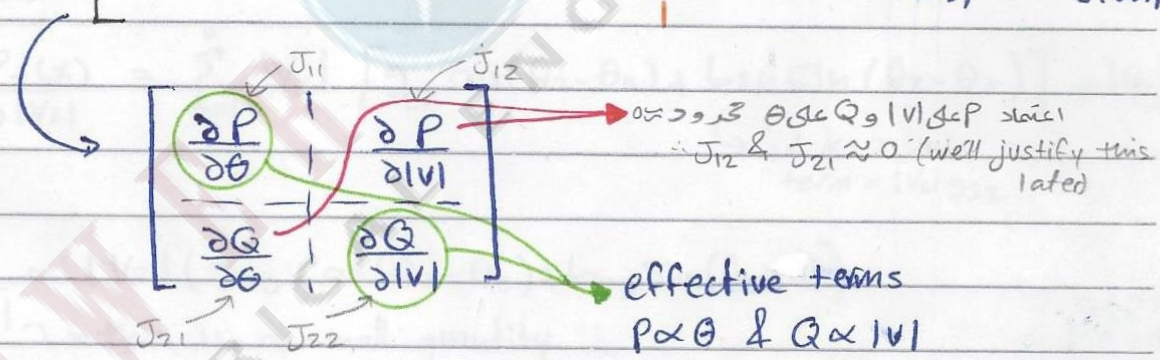 J₁₁ J₁₂
∂P/∂θ ∂P/∂|V|
∂Q/∂θ ∂Q/∂|V|
J₂₁ J₂₂
اعتماد P على |V| و Q على θ محدود ≈ 0
∴ J₁₂ & J₂₁ ≈ 0 (we'll justify this
later)
effective terms
P ∝ θ & Q ∝ |V|